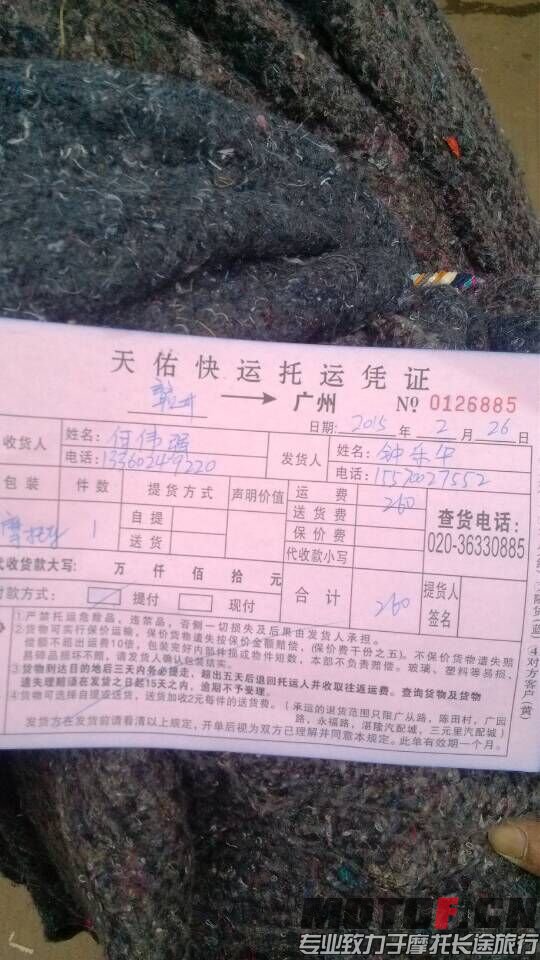 天佑快运托运凭证
→ 广州 № 0126885
日期: 2015 年 2 月 26 日
收货人 姓名: 何伟强 发货人 姓名: 钟乐午
电话: 13360249220 电话: 15570027552
包装 件数 提货方式 声明价值 运费 260 查货电话:
020-36330885
摩托车 1 自提 送货费
送货 保价费
代收款小写
代收货款大写: 万 仟 佰 拾 元 合计 260 提货人
签名
付款方式: 提付 现付
①严禁托运危险品、违禁品,否则一切损失及后果由发货人承担。
②货物可实行保价运输,保价货物遗失按保价金额赔偿,(保价费千份之五)。不保价货物遗失赔
偿额不超出运费10倍,包装完好内部件损或物件短数,本部不负责赔偿。玻璃、塑料等易损、
易碎品损坏不赔,请发货人确认包装结实。
③货物到达目的地后三天内务必提走,超出五天后退回托运人并收取往返运费。查询货物及货物
遗失理赔须在发货之日起15天之内,逾期不予受理。
④货物可选择自提或送货,送货加收2元每件的送货费。(承运的退货范围只限广从路,陈田村,广园
路,永福路,湛隆汽配城,三元里汽配城)
发货方在发货前请看清以上规定,开单后视为双方已理解并同意本规定。此单有效期一个月。
④对方客户(黄)
MOTOF.CN
专业致力于摩托长途旅行